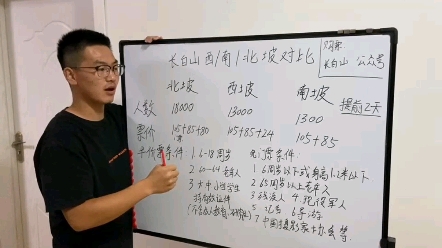 长白山 西/南/北坡对比
购票:
长白山 公众号
北坡 西坡 南坡
人数 18000 13000 1300 提前2天
票价 105+85+80 105+85+24 105+85
半价票条件: 1. 6-18周岁
2. 60-64老年人
3. 大中小学生
持有效证件
免票条件:
1. 6周岁以下或身高1.2米以下
2. 65周岁以上老年人
3. 残疾人 4. 现役军人
5. 记者 6. 导游
7. 中国摄影家协会等